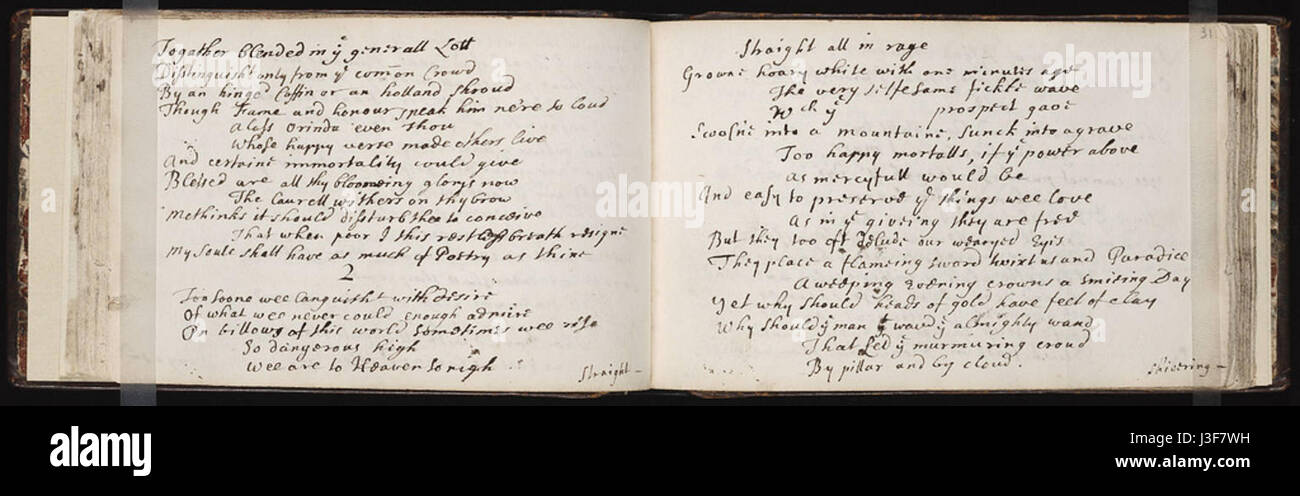 Togather blended in yͤ generall Lott
Distinguisht only from yͤ com̄on Crowd
By an hinged Coffin or an holland shroud
Though Fame and honour speak him ne're so loud
Alass Orinda even thou
Whose happy verse made others live
And certaine immortality could give
Blessed are all thy bloomeing glorys now
The Laurell withers on thy brow
Methinks it should disturb thee to conceive
That when poor I this breath resigne
My Soule shall have as much of Poetry as thine
2
Too soone wee Languisht with desire
Of what wee never could enough admire
On billows of this world sometimes wee rise
So dangerous high
Wee are to Heaven so nigh
Straight
31
Straight all in rage
Growne hoary white with one minutes age
The very selfesame fickle wave
Wch yͤ prospect gave
Swolne into a mountaine, sunck into a grave
Too happy mortalls, if yͤ power above
As mercyfull would be
And easy to preserve yͤ things wee love
As in yͤ giveing they are free
But they too oft delude our wearyed Eyes
They place a flameing sword twixt us and Paradice
A weeping Evening crowns a smiling Day
Yet why should Heads of gold have feet of clay
Why should yͤ man yͭ wav'd yͤ almighty wand
That Led yͤ murmuring croud
By pillar and by cloud.
shivering
alamy
alamy stock photo
J3F7WH
www.alamy.com